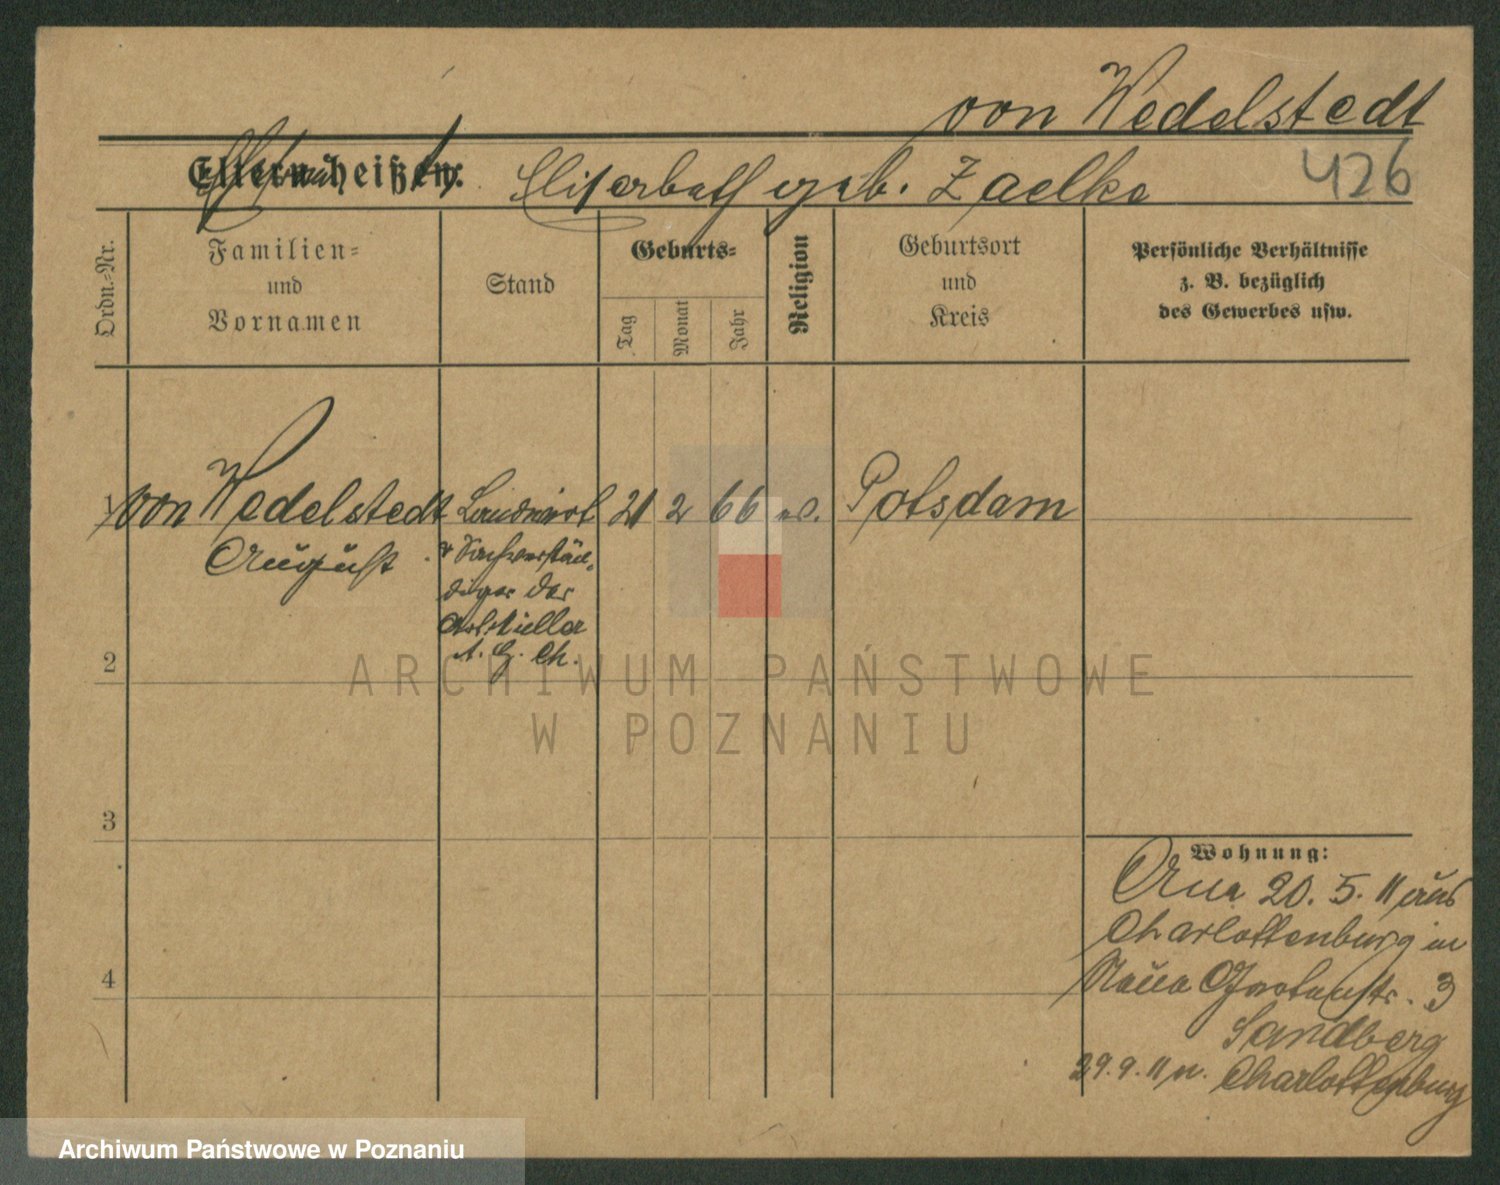 von Wedelstedt
Eltern heißen:
Ehefrau Elisabeth geb. Zaelke
426
Ordn.-Nr.
Familien-
und
Vornamen
Stand
Geburts-
Tag
Monat
Jahr
Religion
Geburtsort
und
Kreis
Persönliche Verhältnisse
z. B. bezüglich
des Gewerbes usw.
1 von Wedelstedt Landwirt 21 2 66 ev. Potsdam
August
u Sachverstän-
diger der
A. G. Ch.
2
3
4
ARCHIWUM PAŃSTWOWE
W POZNANIU
Wohnung:
20. 5. 11 aus
Charlottenburg in
Neue Gartenstr. 3
Sandberg
29. 9. 11 n. Charlottenburg
Archiwum Państwowe w Poznaniu